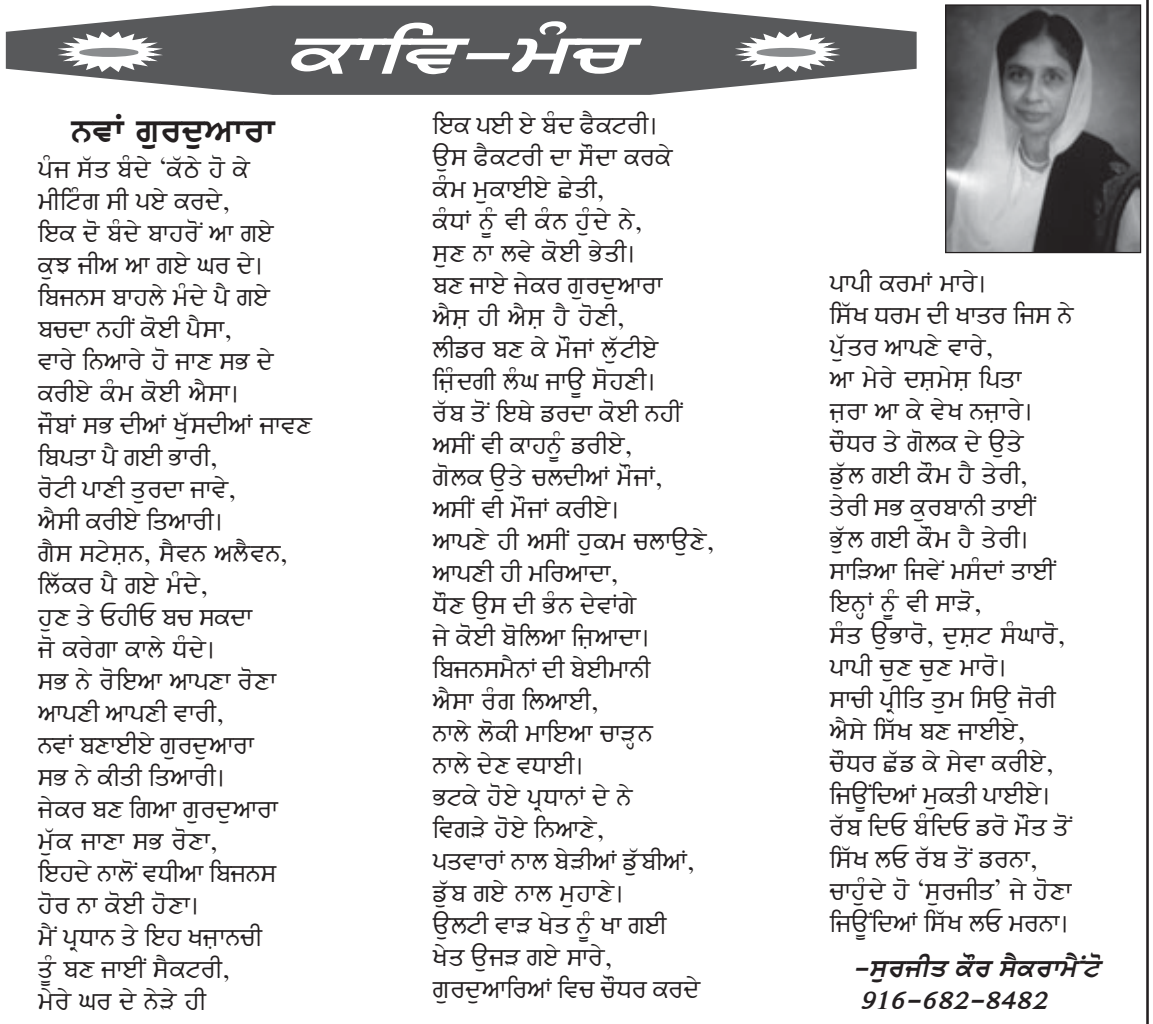 ਕਾਵਿ-ਮੰਚ
ਨਵਾਂ ਗੁਰਦੁਆਰਾ
ਪੰਜ ਸੱਤ ਬੰਦੇ ‘ਕੱਠੇ ਹੋ ਕੇ
ਮੀਟਿੰਗ ਸੀ ਪਏ ਕਰਦੇ,
ਇਕ ਦੋ ਬੰਦੇ ਬਾਹਰੋਂ ਆ ਗਏ
ਕੁਝ ਜੀਅ ਆ ਗਏ ਘਰ ਦੇ।
ਬਿਜਨਸ ਬਾਹਲੇ ਮੰਦੇ ਪੈ ਗਏ
ਬਚਦਾ ਨਹੀਂ ਕੋਈ ਪੈਸਾ,
ਵਾਰੇ ਨਿਆਰੇ ਹੋ ਜਾਣ ਸਭ ਦੇ
ਕਰੀਏ ਕੰਮ ਕੋਈ ਐਸਾ।
ਜੌਬਾਂ ਸਭ ਦੀਆਂ ਖੁੱਸਦੀਆਂ ਜਾਵਣ
ਬਿਪਤਾ ਪੈ ਗਈ ਭਾਰੀ,
ਰੋਟੀ ਪਾਣੀ ਤੁਰਦਾ ਜਾਵੇ,
ਐਸੀ ਕਰੀਏ ਤਿਆਰੀ।
ਗੈਸ ਸਟੇਸ਼ਨ, ਸੈਵਨ ਅਲੈਵਨ,
ਲਿੱਕਰ ਪੈ ਗਏ ਮੰਦੇ,
ਹੁਣ ਤੇ ਓਹੀਓ ਬਚ ਸਕਦਾ
ਜੋ ਕਰੇਗਾ ਕਾਲੇ ਧੰਦੇ।
ਸਭ ਨੇ ਰੋਇਆ ਆਪਣਾ ਰੋਣਾ
ਆਪਣੀ ਆਪਣੀ ਵਾਰੀ,
ਨਵਾਂ ਬਣਾਈਏ ਗੁਰਦੁਆਰਾ
ਸਭ ਨੇ ਕੀਤੀ ਤਿਆਰੀ।
ਜੇਕਰ ਬਣ ਗਿਆ ਗੁਰਦੁਆਰਾ
ਮੁੱਕ ਜਾਣਾ ਸਭ ਰੋਣਾ,
ਇਹਦੇ ਨਾਲੋਂ ਵਧੀਆ ਬਿਜਨਸ
ਹੋਰ ਨਾ ਕੋਈ ਹੋਣਾ।
ਮੈਂ ਪ੍ਰਧਾਨ ਤੇ ਇਹ ਖਜ਼ਾਨਚੀ
ਤੂੰ ਬਣ ਜਾਈਂ ਸੈਕਟਰੀ,
ਮੇਰੇ ਘਰ ਦੇ ਨੇੜੇ ਹੀ
ਇਕ ਪਈ ਏ ਬੰਦ ਫੈਕਟਰੀ।
ਉਸ ਫੈਕਟਰੀ ਦਾ ਸੌਦਾ ਕਰਕੇ
ਕੰਮ ਮੁਕਾਈਏ ਛੇਤੀ,
ਕੰਧਾਂ ਨੂੰ ਵੀ ਕੰਨ ਹੁੰਦੇ ਨੇ,
ਸੁਣ ਨਾ ਲਵੇ ਕੋਈ ਭੇਤੀ।
ਬਣ ਜਾਏ ਜੇਕਰ ਗੁਰਦੁਆਰਾ
ਐਸ਼ ਹੀ ਐਸ਼ ਹੈ ਹੋਣੀ,
ਲੀਡਰ ਬਣ ਕੇ ਮੌਜਾਂ ਲੁੱਟੀਏ
ਜ਼ਿੰਦਗੀ ਲੰਘ ਜਾਊ ਸੋਹਣੀ।
ਰੱਬ ਤੋਂ ਇਥੇ ਡਰਦਾ ਕੋਈ ਨਹੀਂ
ਅਸੀਂ ਵੀ ਕਾਹਨੂੰ ਡਰੀਏ,
ਗੋਲਕ ਉਤੇ ਚਲਦੀਆਂ ਮੌਜਾਂ,
ਅਸੀਂ ਵੀ ਮੌਜਾਂ ਕਰੀਏ।
ਆਪਣੇ ਹੀ ਅਸੀਂ ਹੁਕਮ ਚਲਾਉਣੇ,
ਆਪਣੀ ਹੀ ਮਰਿਆਦਾ,
ਧੌਣ ਉਸ ਦੀ ਭੰਨ ਦੇਵਾਂਗੇ
ਜੇ ਕੋਈ ਬੋਲਿਆ ਜ਼ਿਆਦਾ।
ਬਿਜਨਸਮੈਨਾਂ ਦੀ ਬੇਈਮਾਨੀ
ਐਸਾ ਰੰਗ ਲਿਆਈ,
ਨਾਲੇ ਲੋਕੀ ਮਾਇਆ ਚਾੜ੍ਹਨ
ਨਾਲੇ ਦੇਣ ਵਧਾਈ।
ਭਟਕੇ ਹੋਏ ਪ੍ਰਧਾਨਾਂ ਦੇ ਨੇ
ਵਿਗੜੇ ਹੋਏ ਨਿਆਣੇ,
ਪਤਵਾਰਾਂ ਨਾਲ ਬੇੜੀਆਂ ਡੁੱਬੀਆਂ,
ਡੁੱਬ ਗਏ ਨਾਲ ਮੁਹਾਣੇ।
ਉਲਟੀ ਵਾੜ ਖੇਤ ਨੂੰ ਖਾ ਗਈ
ਖੇਤ ਉਜੜ ਗਏ ਸਾਰੇ,
ਗੁਰਦੁਆਰਿਆਂ ਵਿਚ ਚੌਧਰ ਕਰਦੇ
ਪਾਪੀ ਕਰਮਾਂ ਮਾਰੇ।
ਸਿੱਖ ਧਰਮ ਦੀ ਖਾਤਰ ਜਿਸ ਨੇ
ਪੁੱਤਰ ਆਪਣੇ ਵਾਰੇ,
ਆ ਮੇਰੇ ਦਸ਼ਮੇਸ਼ ਪਿਤਾ
ਜ਼ਰਾ ਆ ਕੇ ਵੇਖ ਨਜ਼ਾਰੇ।
ਚੌਧਰ ਤੇ ਗੋਲਕ ਦੇ ਉਤੇ
ਡੁੱਲ ਗਈ ਕੌਮ ਹੈ ਤੇਰੀ,
ਤੇਰੀ ਸਭ ਕੁਰਬਾਨੀ ਤਾਈਂ
ਭੁੱਲ ਗਈ ਕੌਮ ਹੈ ਤੇਰੀ।
ਸਾੜਿਆ ਜਿਵੇਂ ਮਸੰਦਾਂ ਤਾਈਂ
ਇਨ੍ਹਾਂ ਨੂੰ ਵੀ ਸਾੜੋ,
ਸੰਤ ਉਭਾਰੋ, ਦੁਸ਼ਟ ਸੰਘਾਰੋ,
ਪਾਪੀ ਚੁਣ ਚੁਣ ਮਾਰੋ।
ਸਾਚੀ ਪ੍ਰੀਤਿ ਤੁਮ ਸਿਉ ਜੋਰੀ
ਐਸੇ ਸਿੱਖ ਬਣ ਜਾਈਏ,
ਚੌਧਰ ਛੱਡ ਕੇ ਸੇਵਾ ਕਰੀਏ,
ਜਿਊਂਦਿਆਂ ਮੁਕਤੀ ਪਾਈਏ।
ਰੱਬ ਦਿਓ ਬੰਦਿਓ ਡਰੋ ਮੌਤ ਤੋਂ
ਸਿੱਖ ਲਓ ਰੱਬ ਤੋਂ ਡਰਨਾ,
ਚਾਹੁੰਦੇ ਹੋ ‘ਸੁਰਜੀਤ’ ਜੇ ਹੋਣਾ
ਜਿਊਂਦਿਆਂ ਸਿੱਖ ਲਓ ਮਰਨਾ।
-ਸੁਰਜੀਤ ਕੌਰ ਸੈਕਰਾਮੈਂਟੋ
916-682-8482